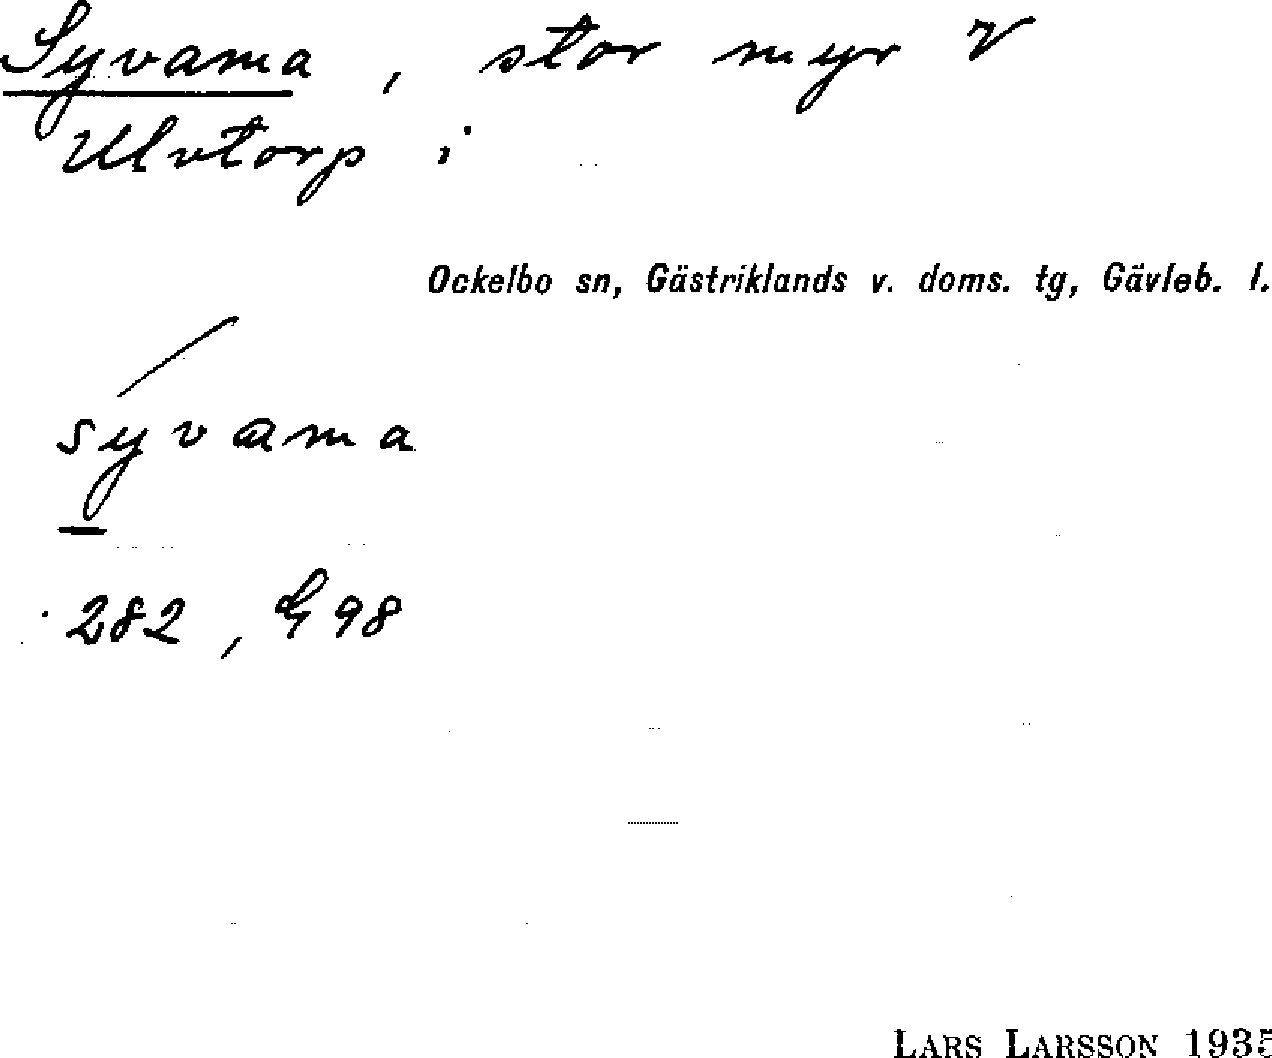 Syvama, stor myr V
Ulvtorp i
Ockelbo sn, Gästriklands v. doms. tg, Gävleb. l.
syvama
282, G 98
LARS LARSSON 1935